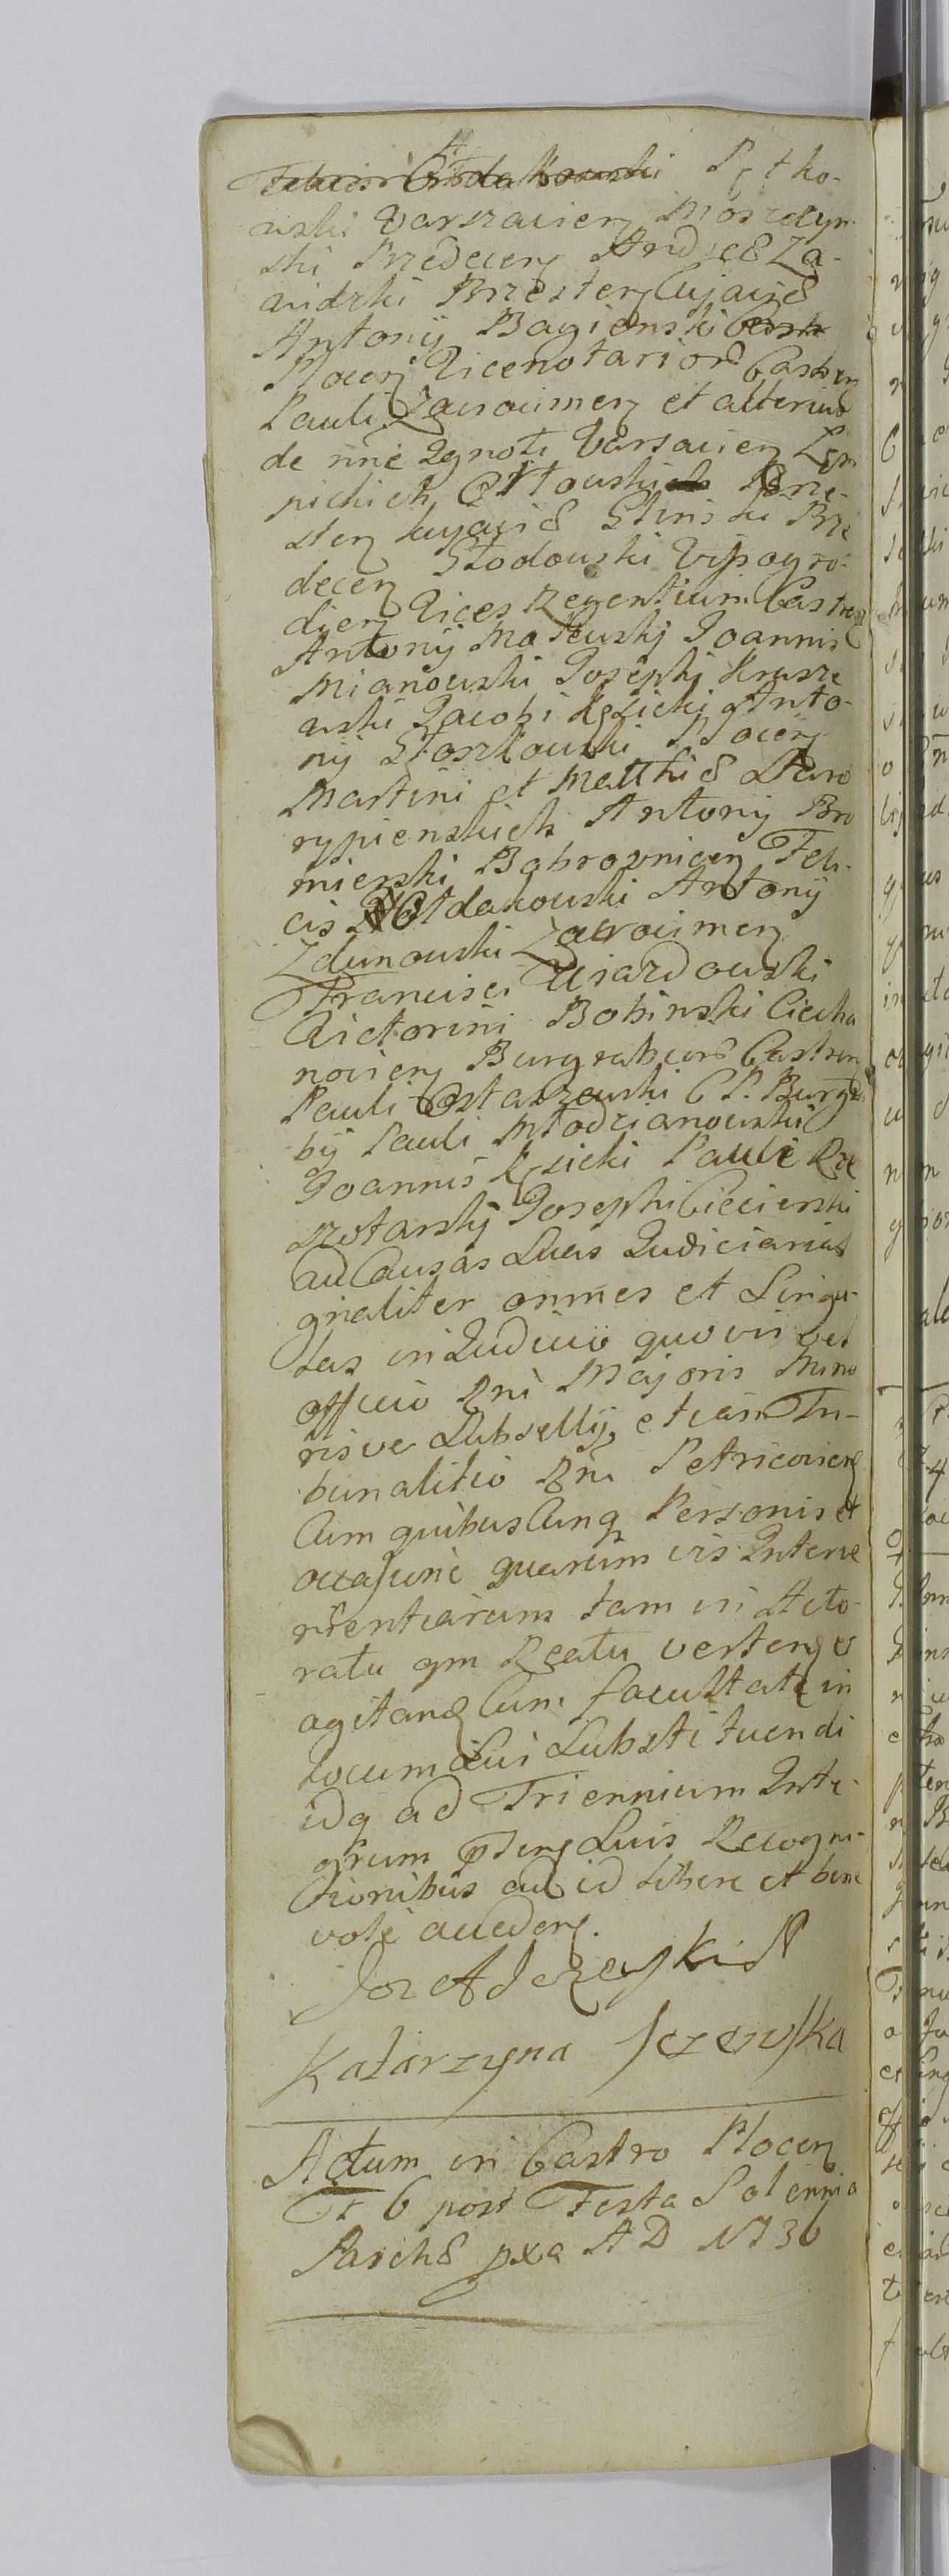 Felicis Ołdakowski Pętko-
wski Varsavien Moszczyn
ski Przedecen Andreæ Za-
widzki Brzesten Cujaviæ
Antonij Bagienski
Plocen Vicenotarior Castren
Pauli Zawroimen et alterius
de nne Ignoti Varsavien Lem
pickich Orłowski Brze-
sten Cujaviæ Glinski Prze
decen Słodowski Vissogro-
dien Vices Regentium Castren
Antonij Małewskj Joannis
Mianowski Josephi Krusze
wski Jacobi Kęsicki Anto-
nij Stoszkowski Plocen
Martini et Matthiæ Staro
rypienskich Antonij Bro
mierski Bobrovnicen Feli-
cis Ołdakowski Antonij
Zdunowski Zawroimen
Francisci Wiazdowski
Victorini Bobinski Ciecha
novien Burgrabior Castren
Pauli Ostaszewski C P. Burgra
bij Pauli Młodzianowski
Joannis Kęsicki Pauli Rze
szotarskj Josephi Ciecierski
ad Causas Suas Judiciarias
gnaliter omnes et Singu-
las in Judicio quovis vel
officio Rni Majoris Mino
risve Subsellij, etiam Tri-
bunalitio Rni Petricovien
Cum quibuscunq Personis et
occasione quarumvis Interve
nientiarum tam in Acto-
ratu qm Reatu verten et
agitand Cum facultate in
locum Sui Substituendi
idq ad Triennium Inte-
grum pnten Suis Recogni-
tionibus ad id libere et bene
vole acceden.
Jozef Jezewski
Katarzyna Jezewska
Actum in Castro Plocen
Fr 6 post Festa Solennia
Paschæ pxa A D 1736